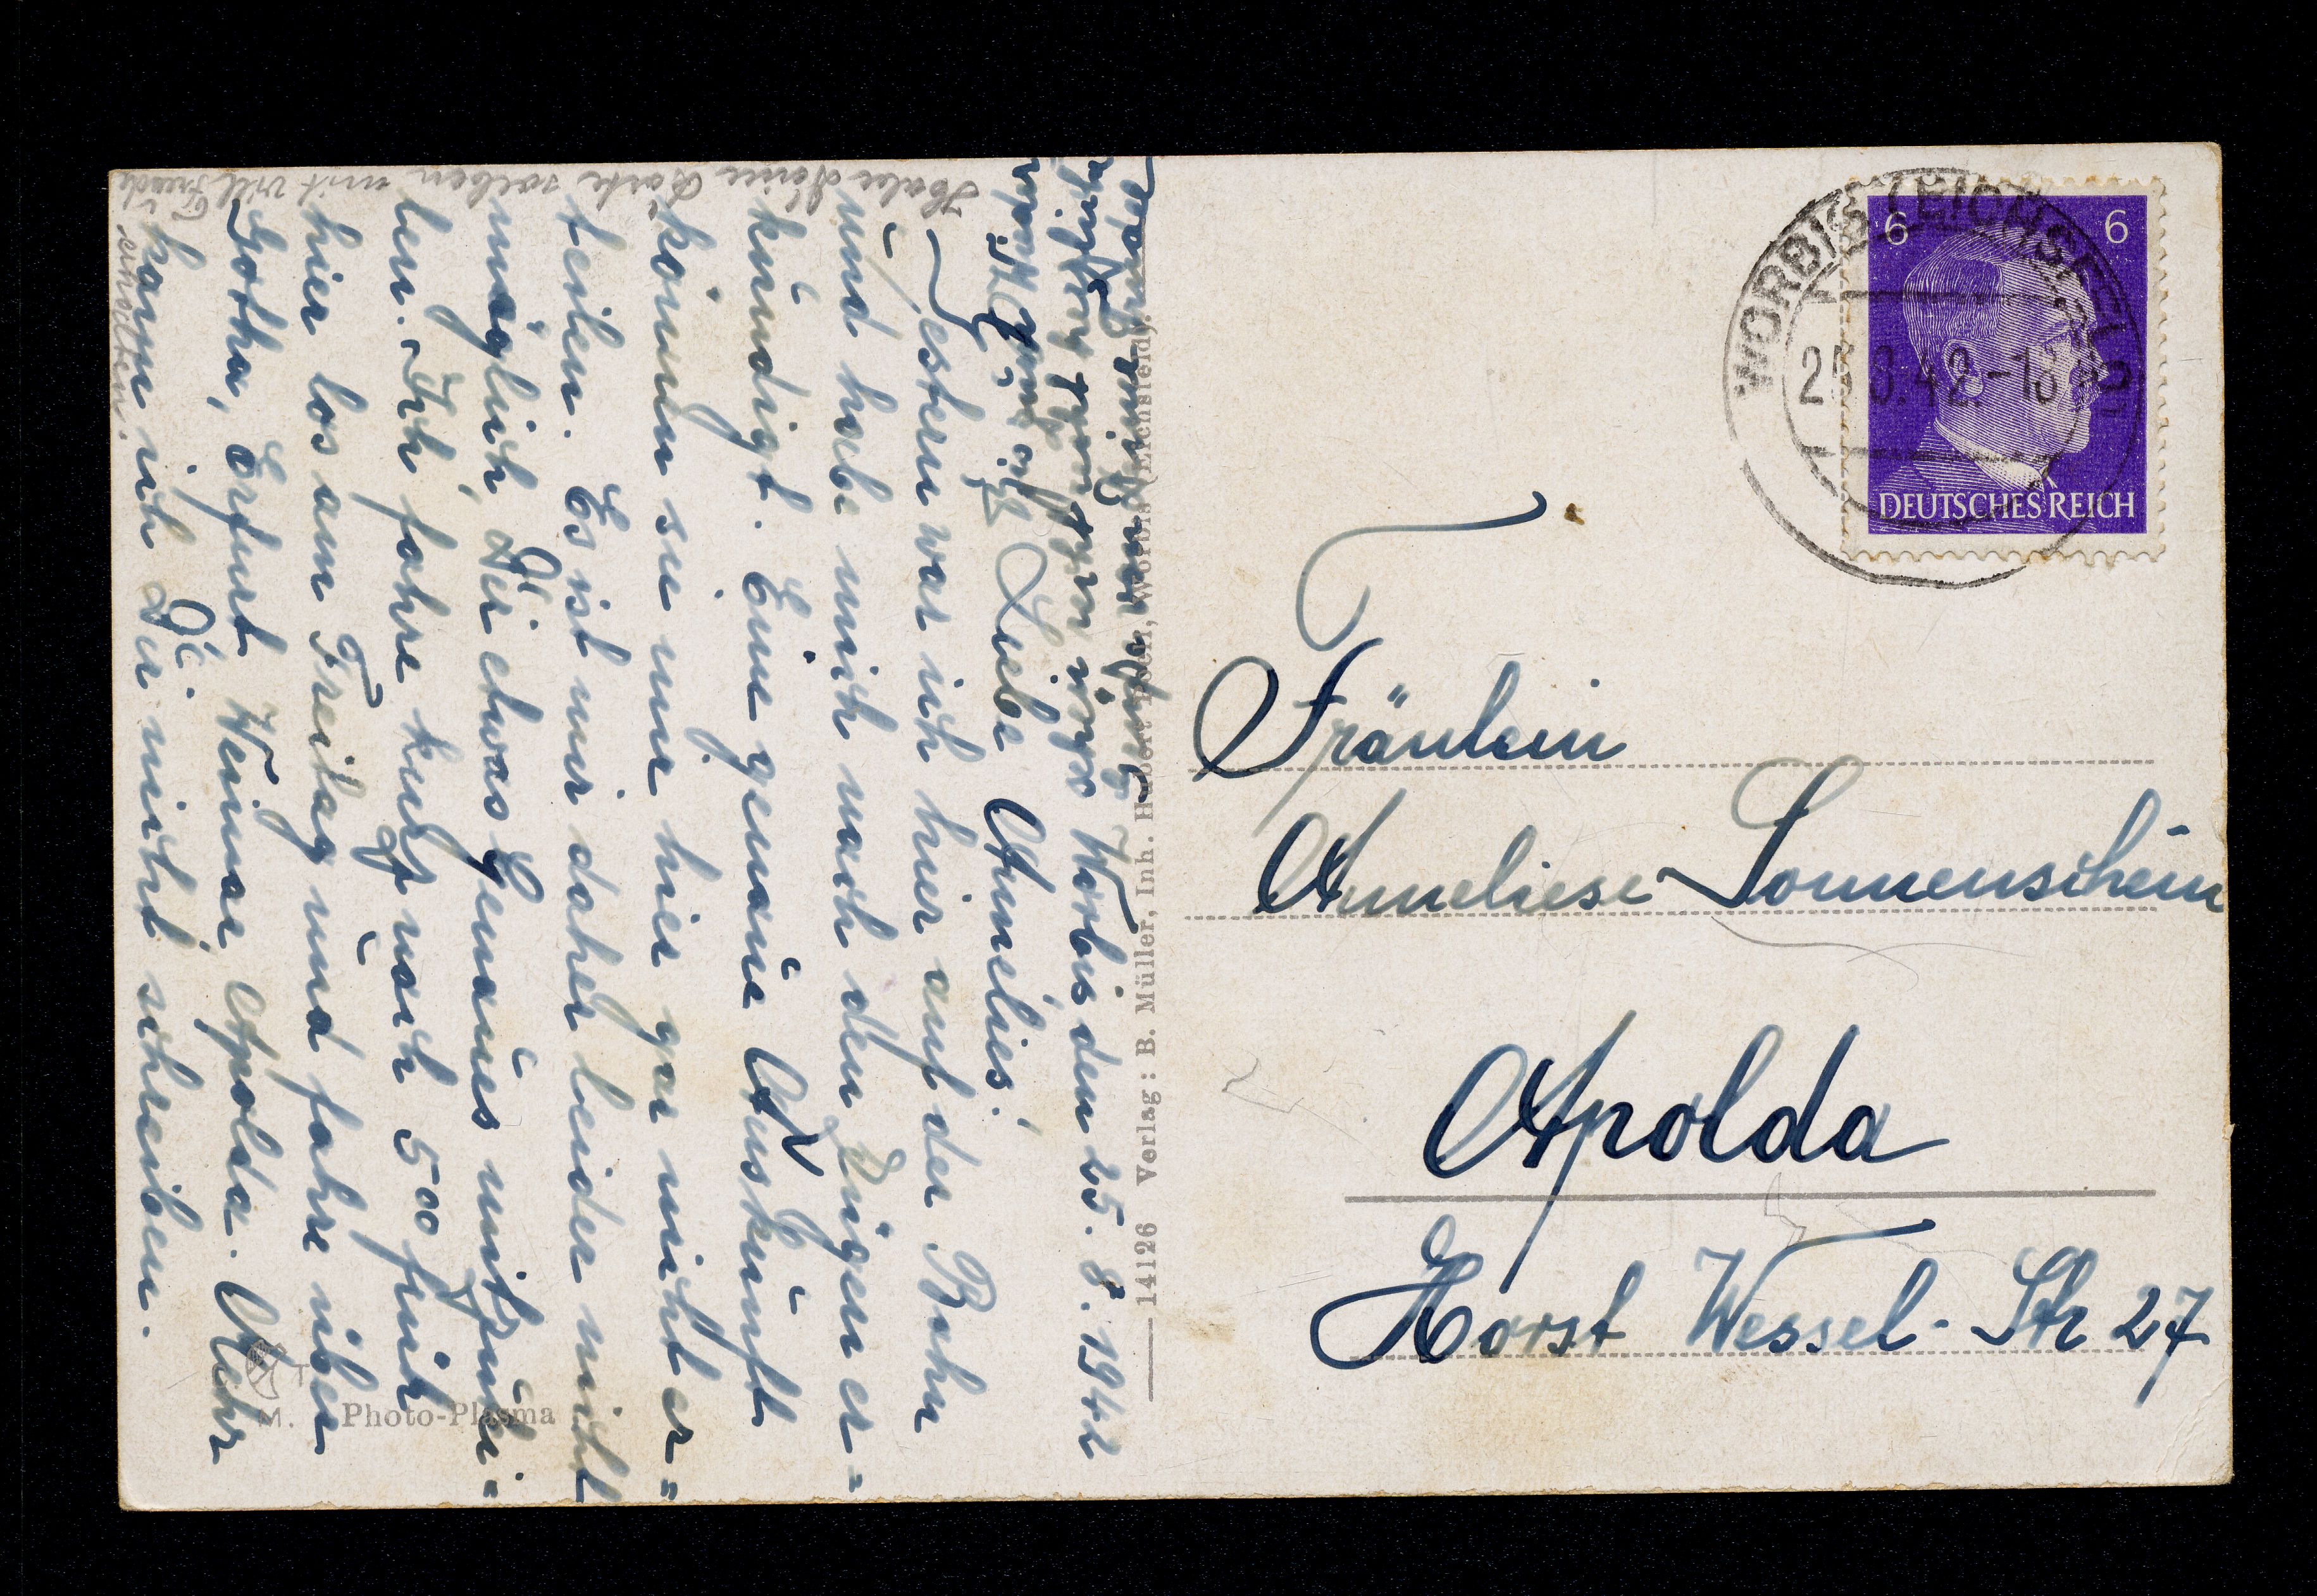 Worbis den 25. 8. 1942
Liebe Annelies!
Gestern war ich hier auf der Bahn
und habe mich nach den Zügen er=
kündigt. Eine genaue Auskunft
können sie mir hier gar nicht er=
teilen. Es ist mir daher leider nicht
möglich, Dir etwas Genaues mitzutei=
len. Ich fahre kurz nach 500 früh
hier los am Freitag und fahre über
Gotha, Erfurt Weimar Apolda. Mehr
kann ich Dir nicht schreiben.
Habe Deine Karte soeben mit viel Freude
erhalten.
14126 Verlag: B. Müller, Inh. Worbis (Eichsfeld).
M. Photo-Plasma
WORBIS (EICHSFELD)
25.8.42.-13
6 6
DEUTSCHES REICH
Fräulein
Anneliese Sonnenschein
Apolda
Horst Wessel-Str 27